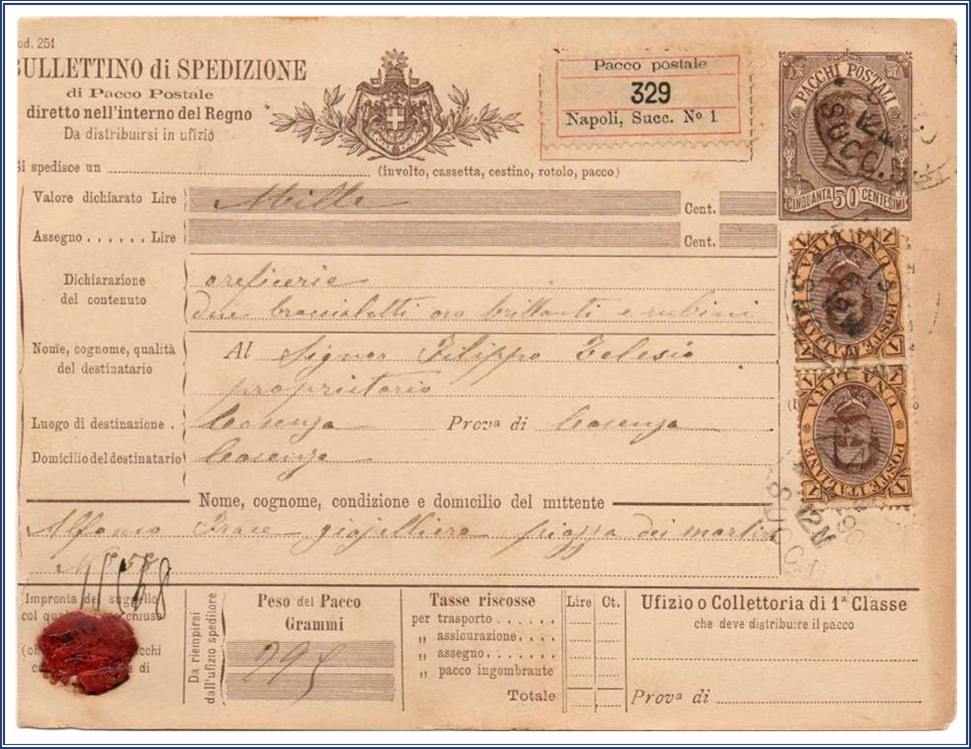 od. 251
BULLETTINO di SPEDIZIONE
di Pacco Postale
diretto nell'interno del Regno
Da distribuirsi in ufizio
Pacco postale
329
Napoli, Succ. Nº 1
PACCHI POSTALI
CINQUANTA 50 CENTESIMI
Si spedisce un (involto, cassetta, cestino, rotolo, pacco)
Valore dichiarato Lire Mille Cent.
Assegno Lire Cent.
Dichiarazione del contenuto
oreficerie
due braccialetti oro brillanti e rubini
Nome, cognome, qualità del destinatario
Al Signor Filippo Telesio
proprietario
Luogo di destinazione. Cosenza Provª di Cosenza
Domicilio del destinatario Cosenza
UNA LIRA
POSTE ITALIANE
UNA LIRA
POSTE ITALIANE
Nome, cognome, condizione e domicilio del mittente
Alfonso gioielliere piazza dei martiri
Nº 58
Impronta del suggello
col
Da riempirsi dall'ufizio speditore
Peso del Pacco
Grammi
295
Tasse riscosse Lire Ct.
per trasporto
„ assicurazione
„ assegno
„ pacco ingombrante
Totale
Ufizio o Collettoria di 1ª Classe
che deve distribuire il pacco
Provª di